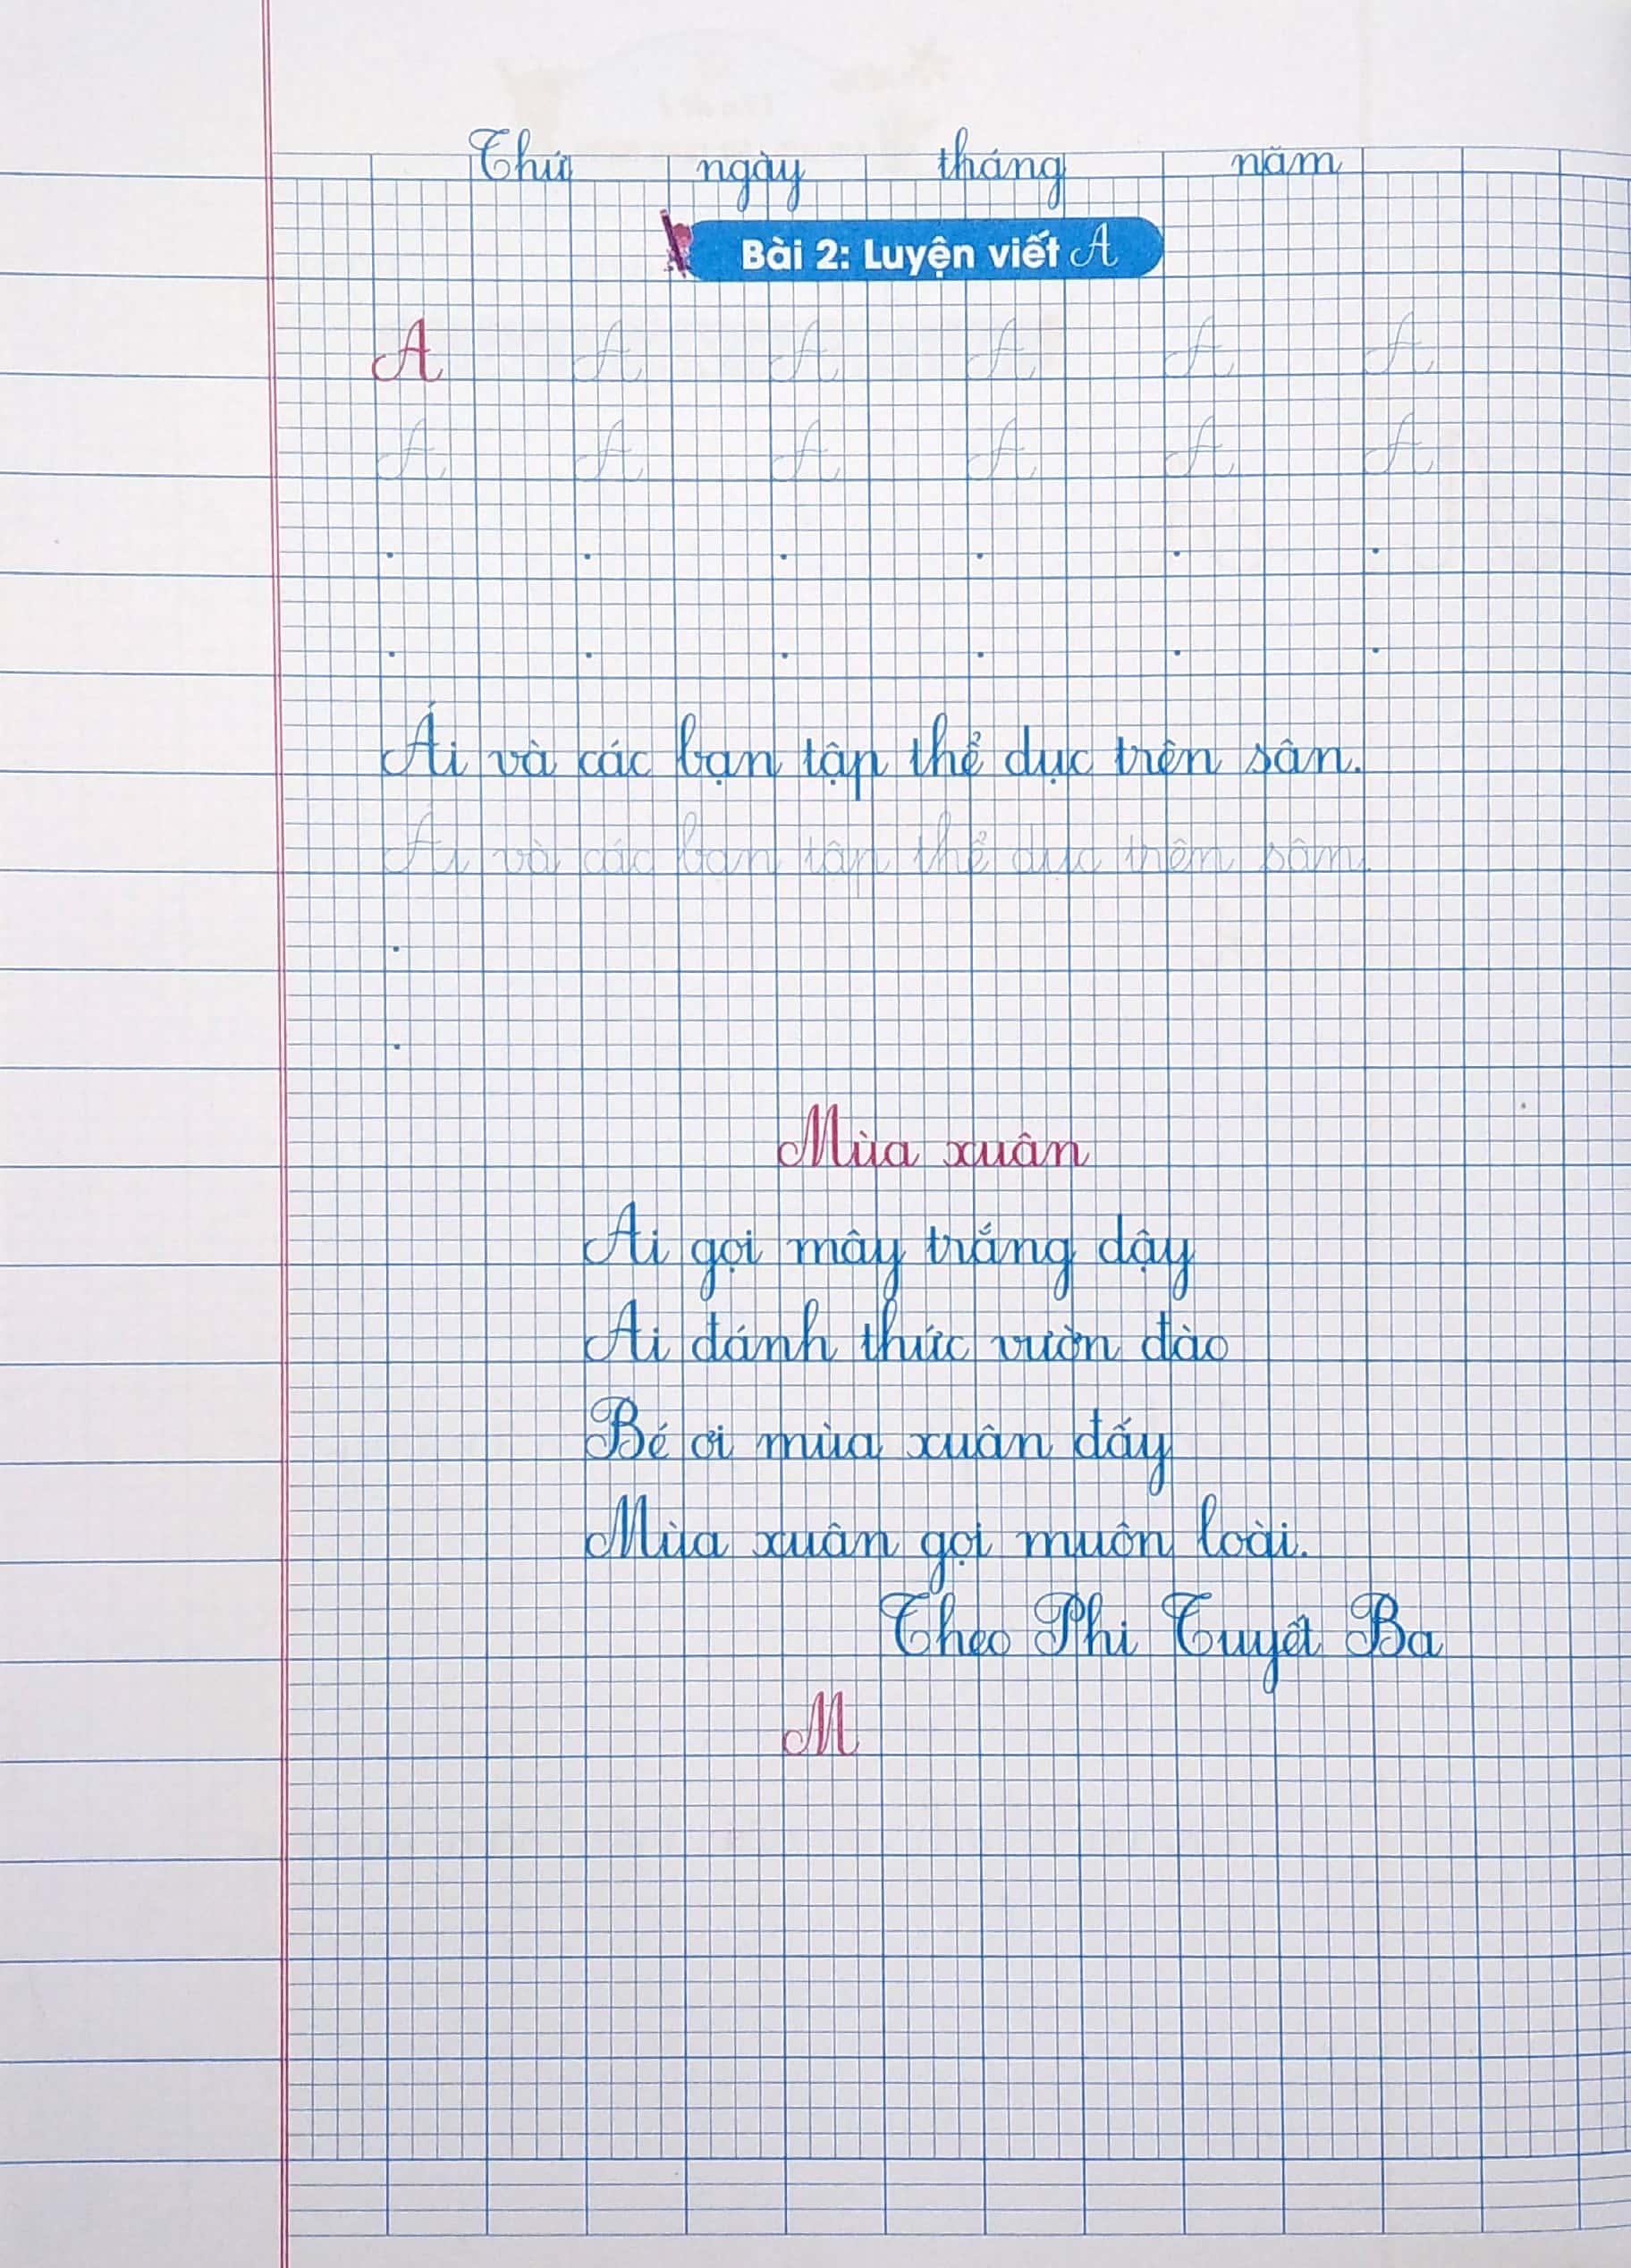 Thứ ngày tháng năm
Bài 2: Luyện viết A
A A A A A A
A A A A A A
Ái và các bạn tập thể dục trên sân.
Ái và các bạn tập thể dục trên sân.
Mùa xuân
Ai gọi mây trắng dậy
Ai đánh thức vườn đào
Bé ơi mùa xuân đấy
Mùa xuân gọi muôn loài.
Theo Phi Tuyết Ba
M